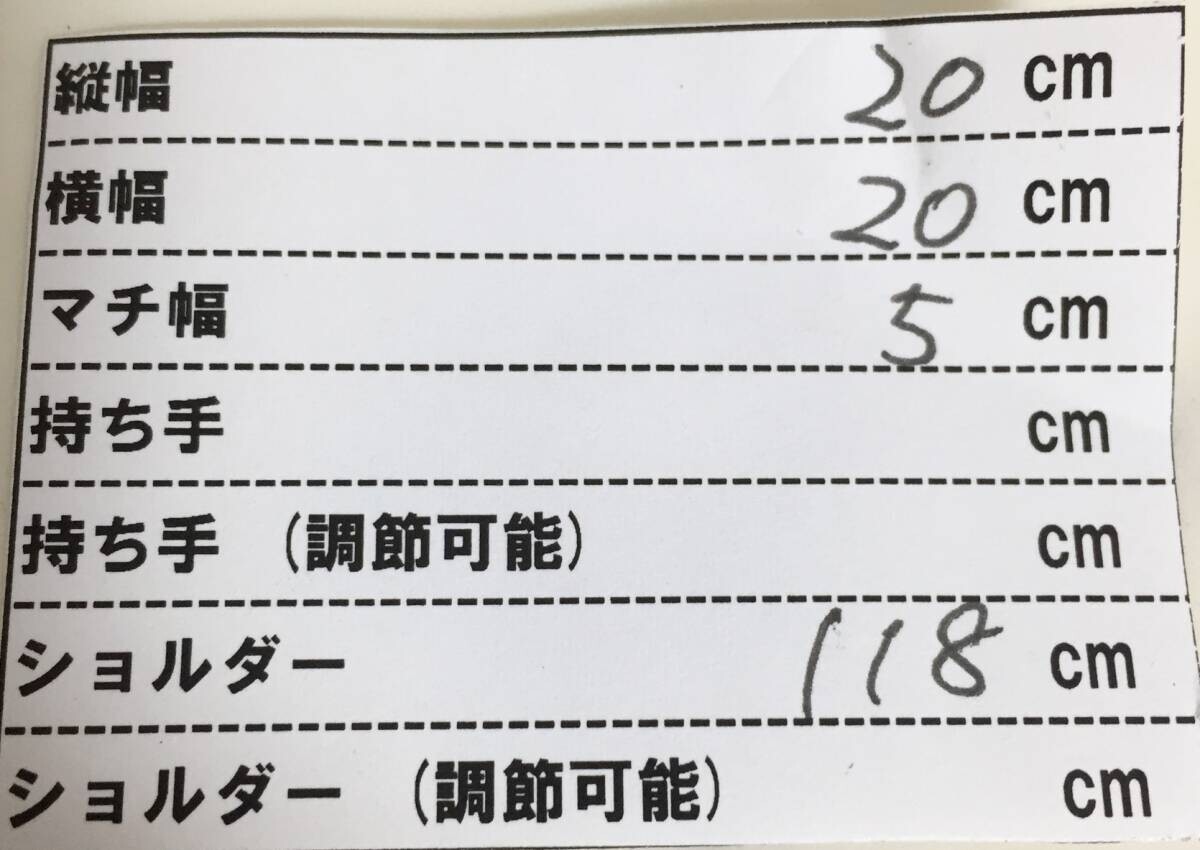 縦幅 20 cm
横幅 20 cm
マチ幅 5 cm
持ち手 cm
持ち手 (調節可能) cm
ショルダー 118 cm
ショルダー (調節可能) cm